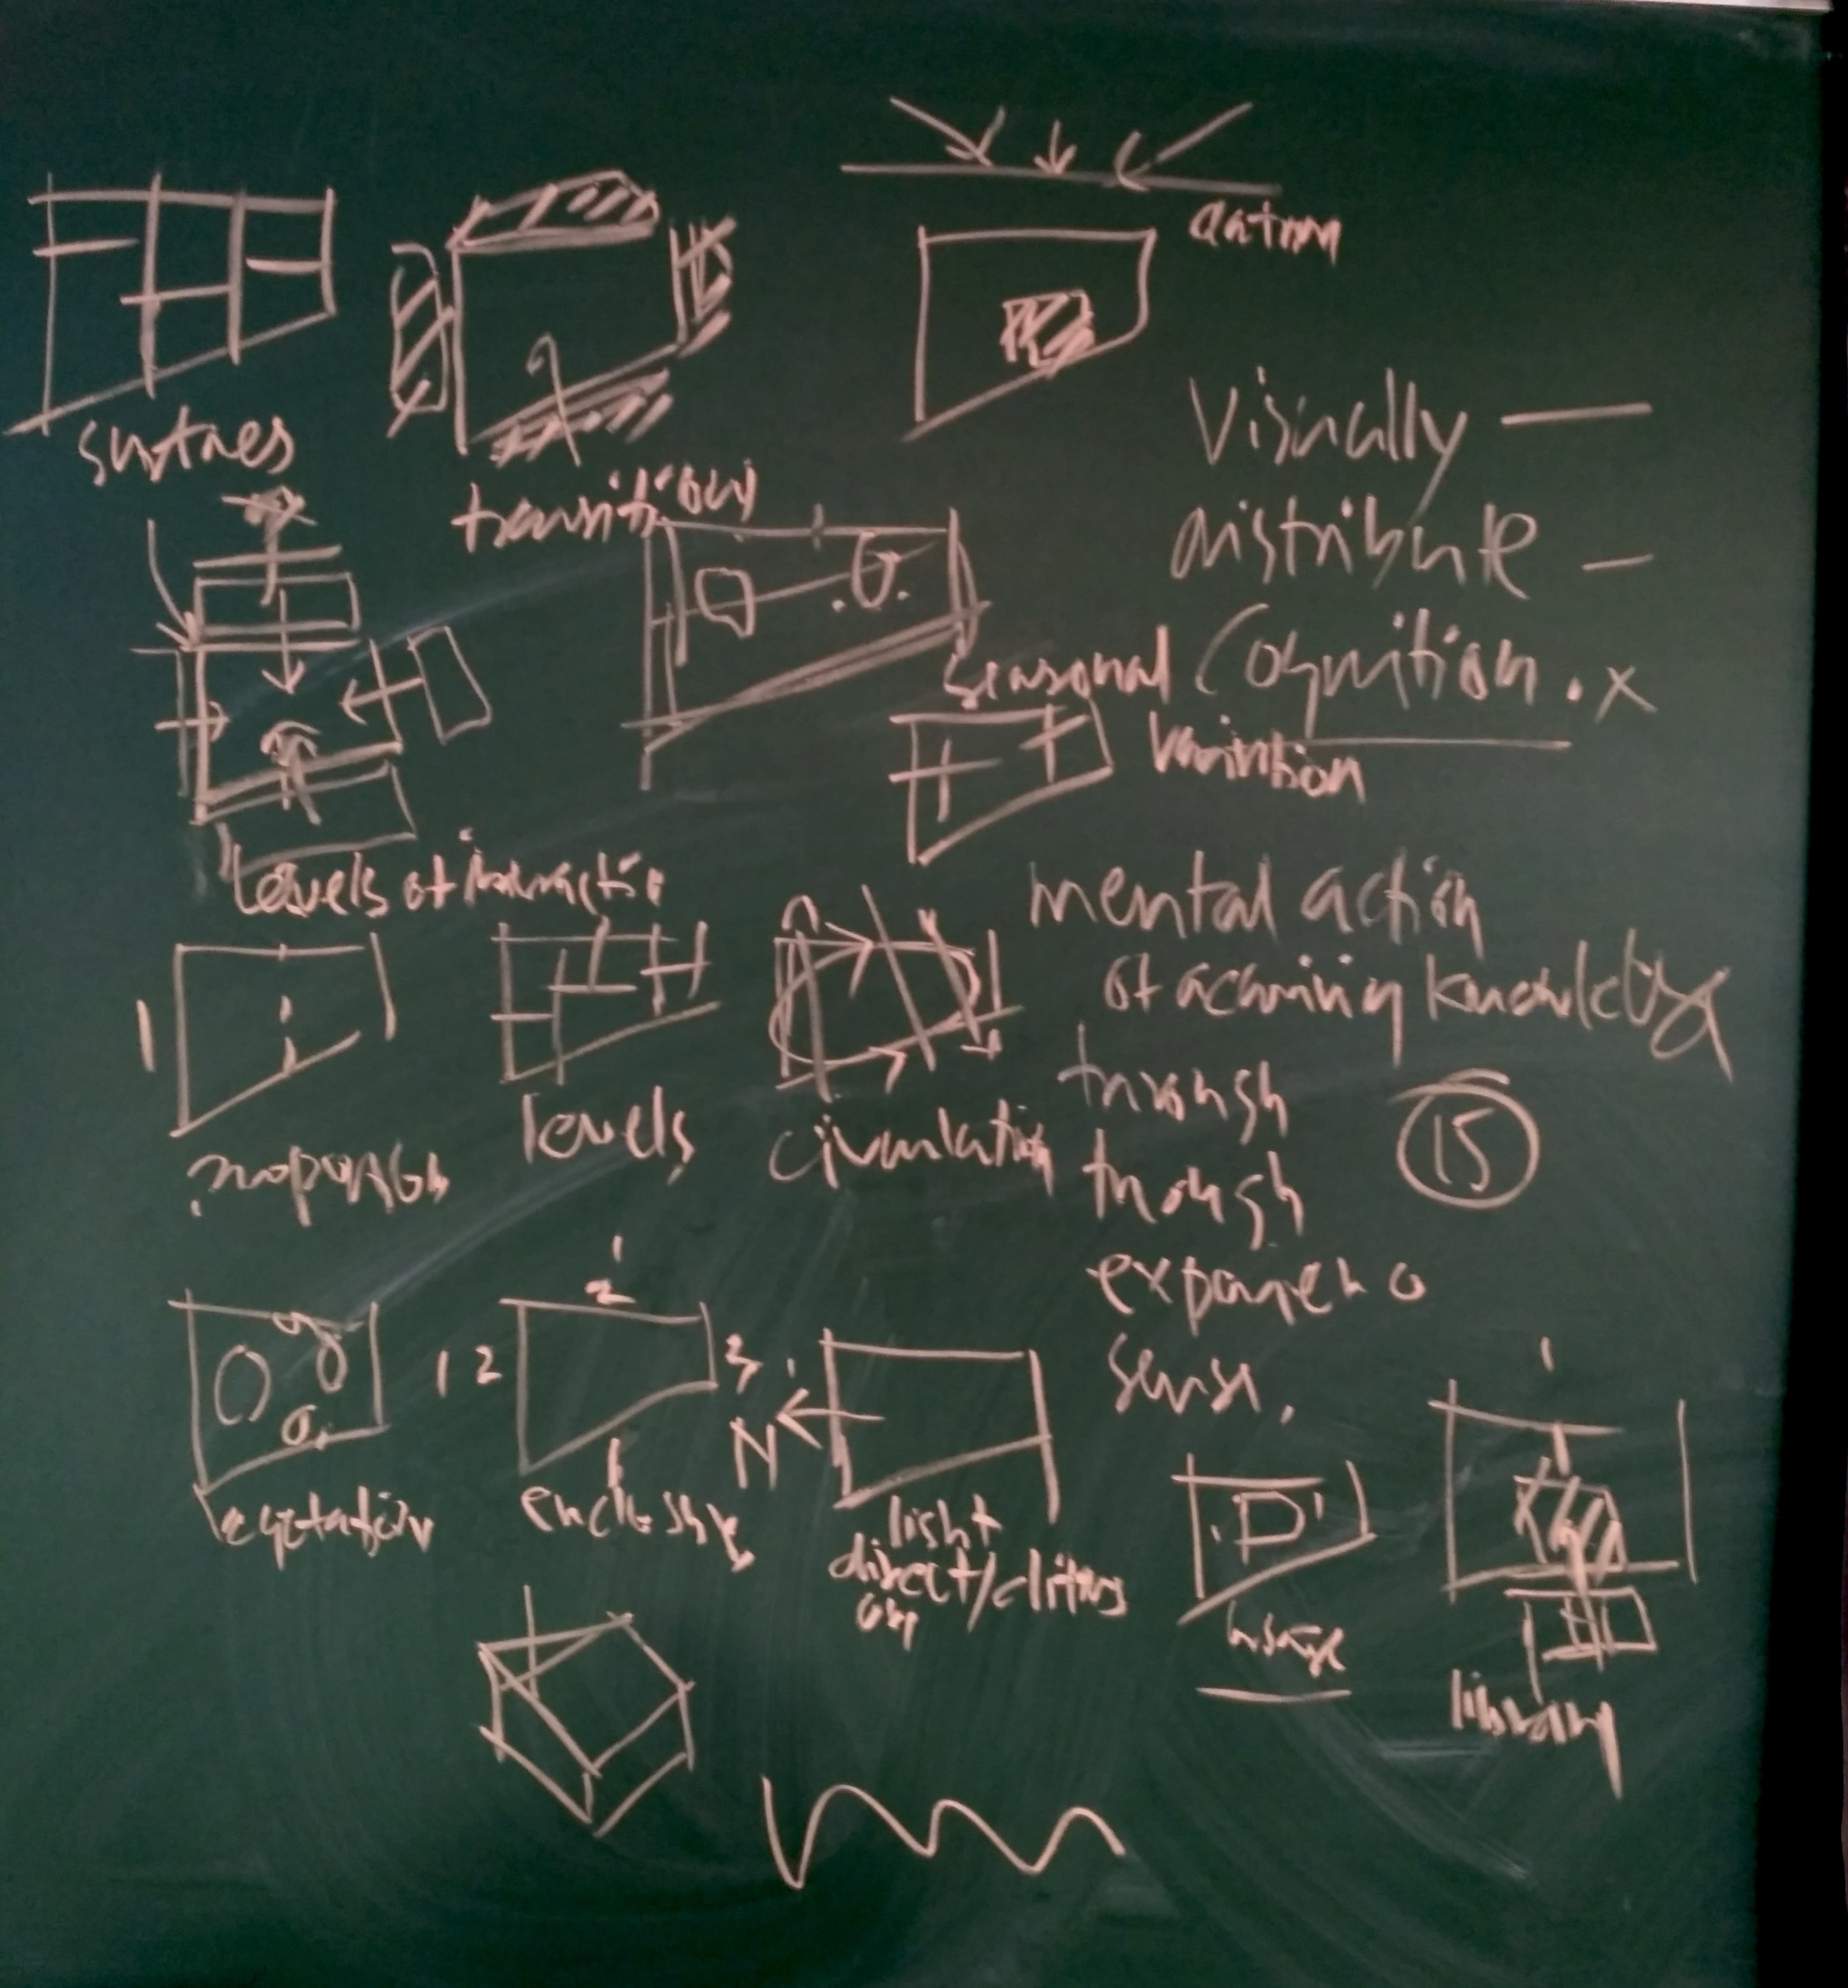 datum
surfaces
transitions
Visually —
distribute —
Cognition . x
seasonal
variation
levels of interaction
mental action
of acquiring knowledge
through
through
sense.
15
proportion
levels
circulation
1 2
1
2
3
N
vegetation
enclosure
light
direct/
D
library